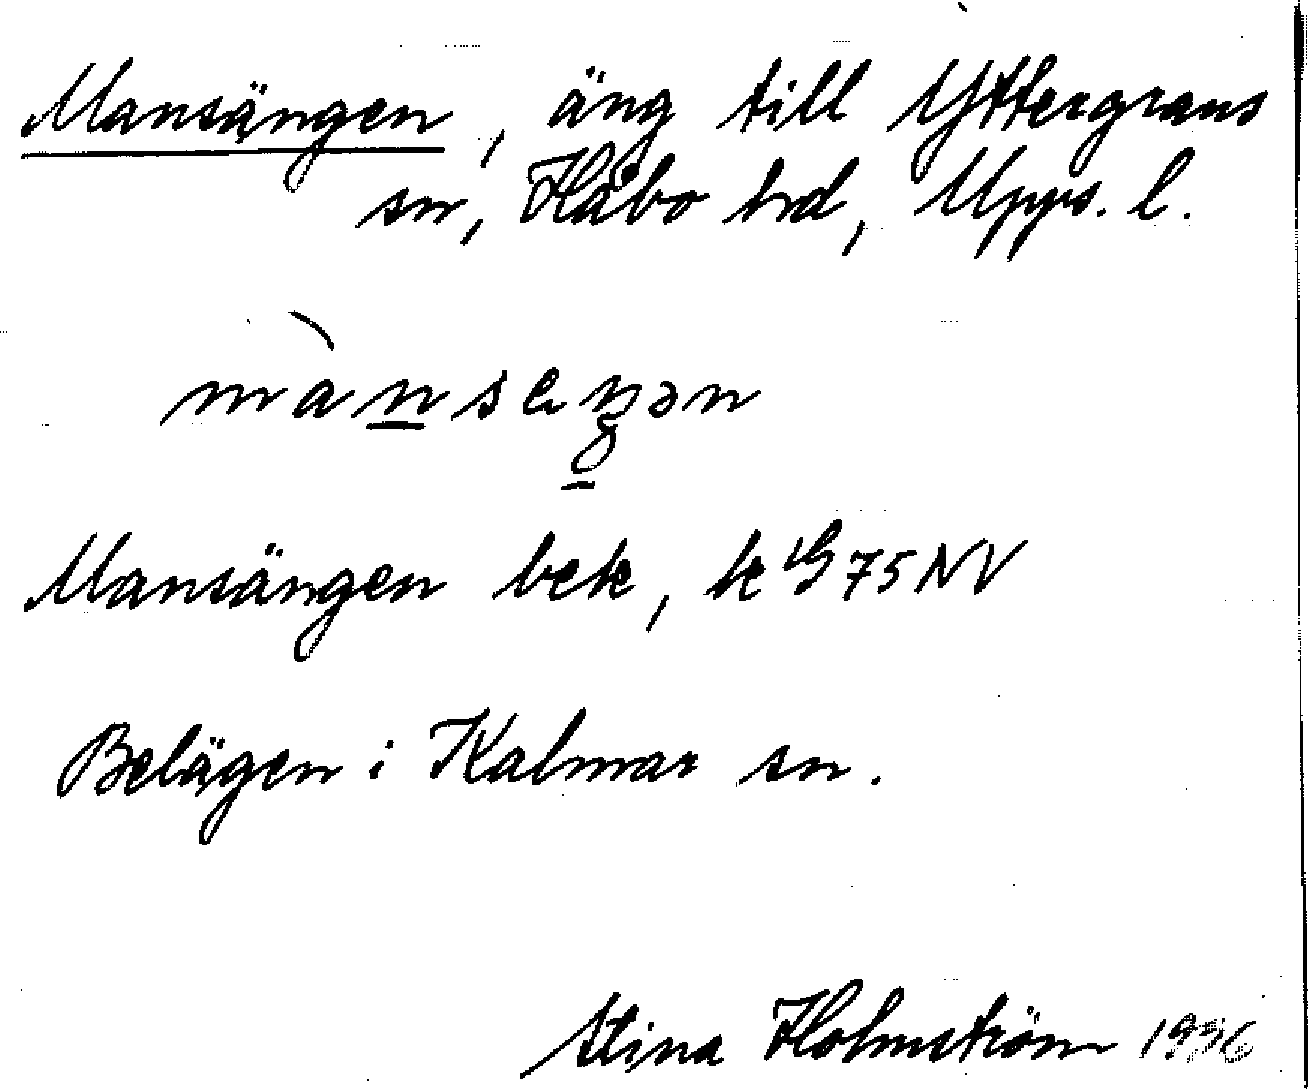 Mansängen, äng till Yttergrans
sn, Håbo hd, Upps. l.
Mansängen bek, k 75 NV
Belägen i Kalmar sn.
Stina Holmström 1936